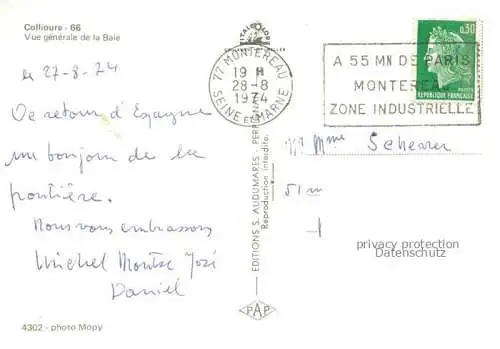 Collioure - 66
Vue générale de la Baie
le 27-8-74
De retour d'Espagne
un bonjour de la
frontière.
Nous vous embrassons
Michel Montse José
Daniel
4302 - photo Mopy
77 MONTEREAU
19 H
28-8
1974
SEINE ET MARNE
EDITIONS S. AUDUMARES
Reproduction interdite.
PAP
0,30
REPUBLIQUE FRANÇAISE
A 55 MN DE PARIS
MONTEREAU
ZONE INDUSTRIELLE
Mme
privacy protection
Datenschutz